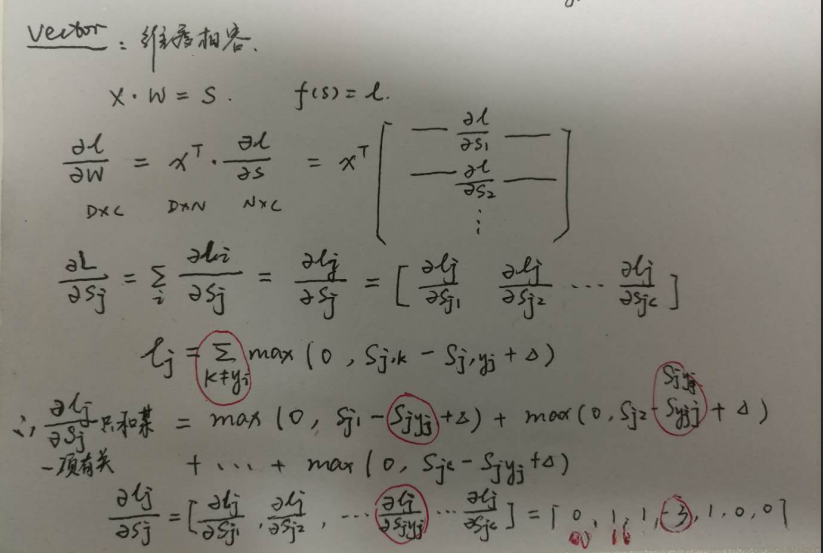 vector : 维度相容.
X · W = S. f(s) = l.
∂l/∂W = X^T · ∂l/∂S = X^T [ — ∂l/∂S₁ — — ∂l/∂S₂ — ⋮ ]
D×C D×N N×C
∂L/∂Sj = Σ_i ∂Li/∂Sj = ∂lj/∂Sj = [ ∂lj/∂Sj1 ∂lj/∂Sj2 ⋯ ∂lj/∂Sjc ]
lj = Σ_{k≠yj} max(0, Sj,k - Sj,yj + Δ)
Sjyj
∴ ∂lj/∂Sj 只和某 = max(0, Sj1 - Sjyj + Δ) + max(0, Sj2 - Syjj + Δ)
一项有关 + ⋯ + max(0, Sjc - Sjyj + Δ)
∂lj/∂Sj = [ ∂lj/∂Sj1 , ∂lj/∂Sj2 , ⋯ ∂lj/∂Sjyj ⋯ ∂lj/∂Sjc ] = [ 0, 1, 1, -3, 1, 0, 0 ]